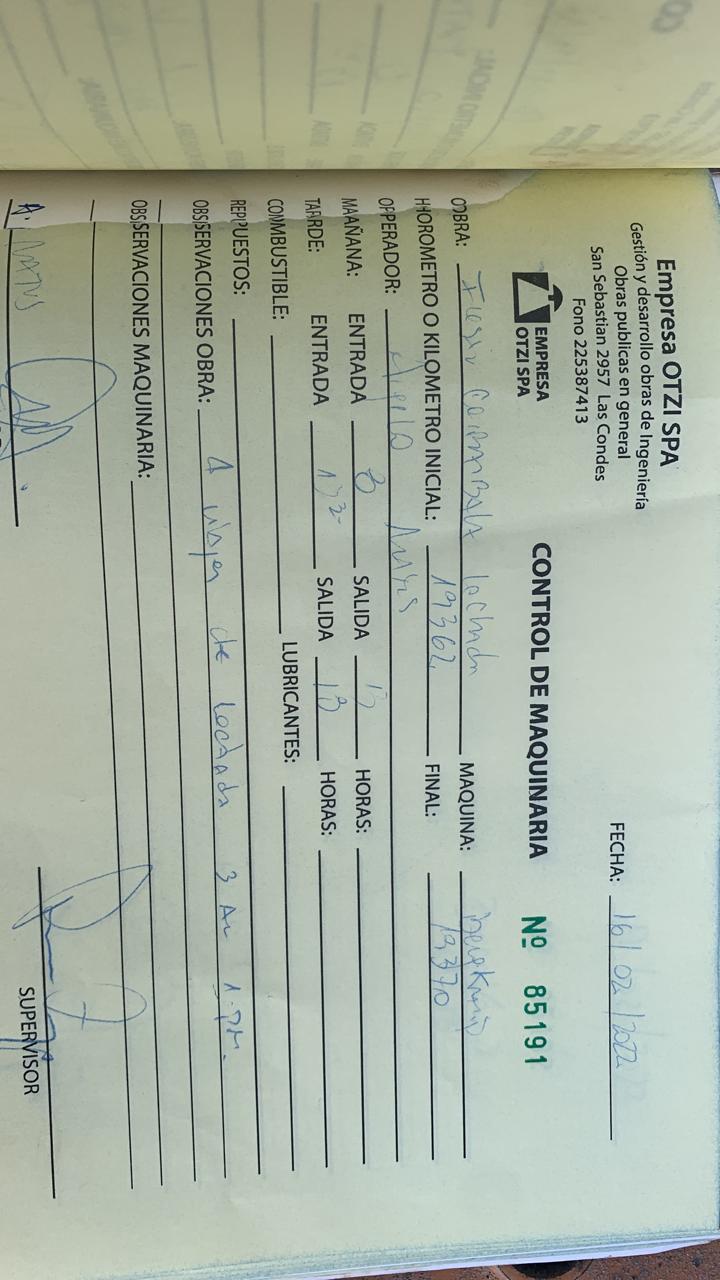 Empresa OTZI SPA
Gestión y desarrollo obras de Ingeniería
Obras publicas en general
San Sebastian 2957 Las Condes
Fono 225387413
EMPRESA
OTZI SPA
FECHA: 16/02/2022
CONTROL DE MAQUINARIA Nº 85191
OBRA: lechada MAQUINA:
HOROMETRO O KILOMETRO INICIAL: 19362 FINAL: 19370
OPERADOR: Angelo
MAÑANA: ENTRADA 8 SALIDA 13 HORAS:
TARDE: ENTRADA SALIDA 18 HORAS:
COMBUSTIBLE: LUBRICANTES:
REPUESTOS:
OBSERVACIONES OBRA: 4 viajes de lechada 3 AM 1 PM.
OBSERVACIONES MAQUINARIA:
A. MATUS
SUPERVISOR